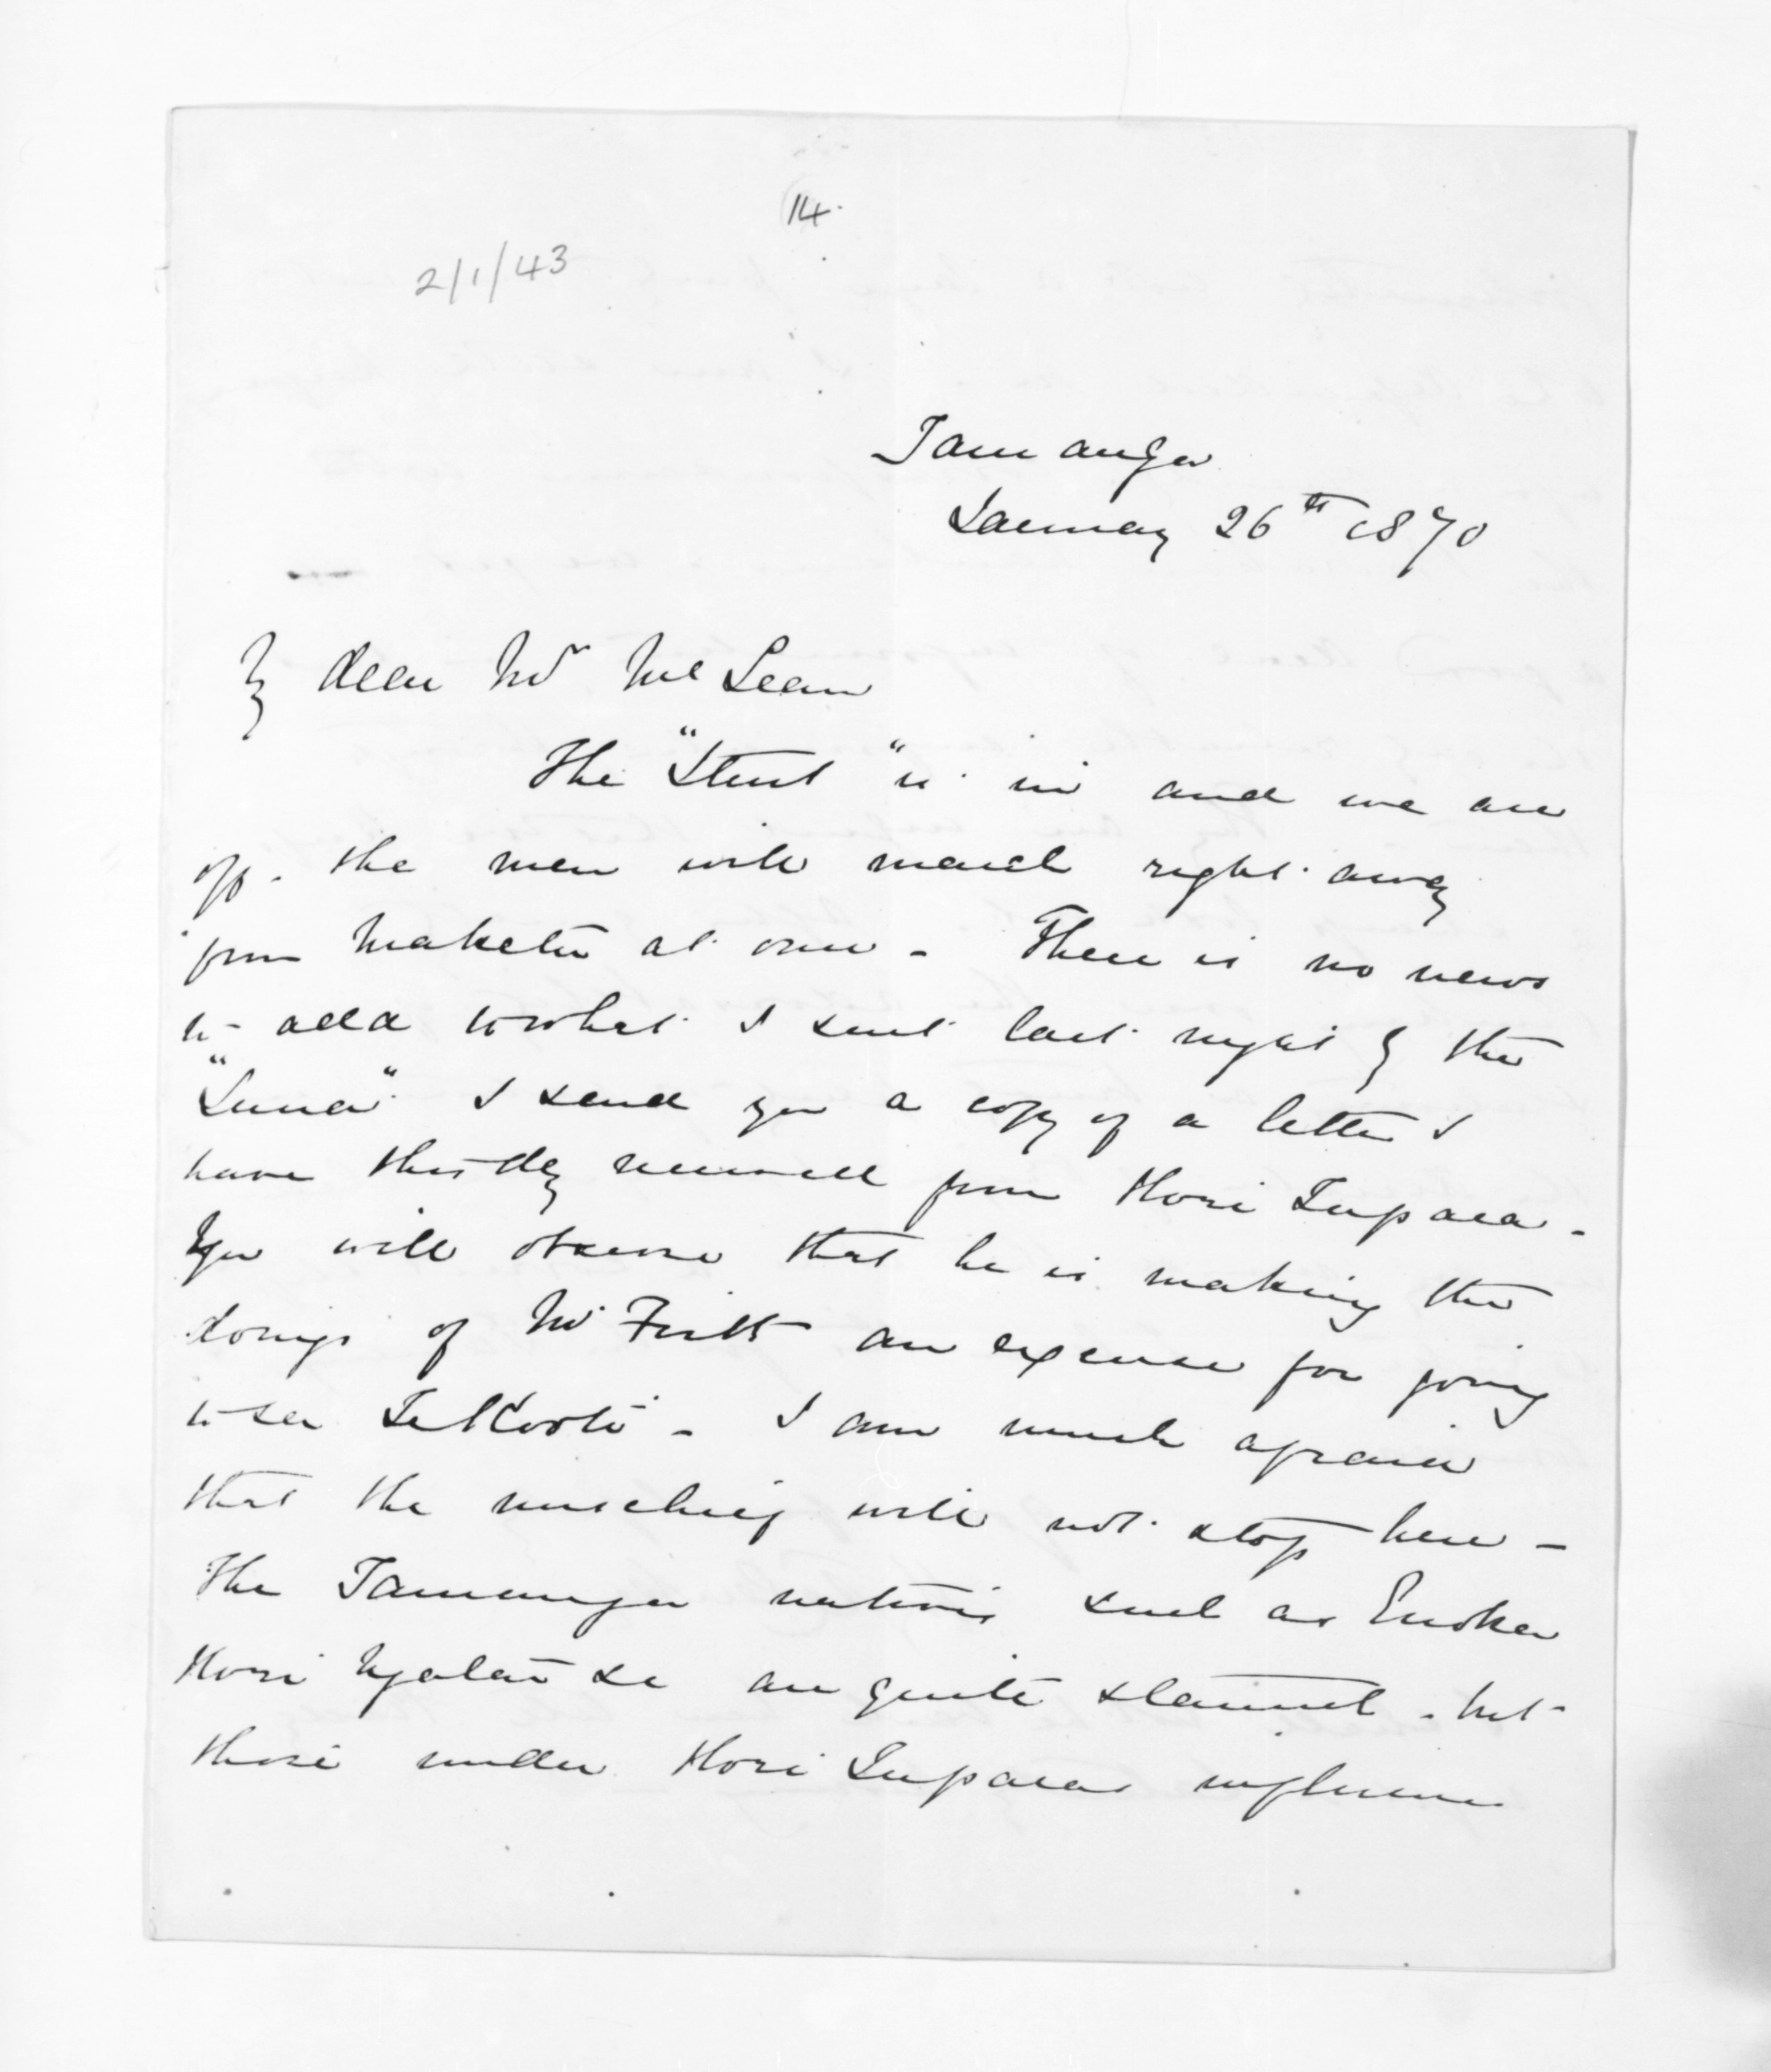 14.
2/1/43
Tauranga
January 26th 1870
My dear Mr McLean
The "Sturt" is in and we are
off. the men will march right away
from Maketu at once - There is no news
to add to what I sent last night by the
"Luna". I send you a copy of a letter I
have this day received from Hori Tupaea -
You will observe that he is making the
doings of Mr Firth an excuse for going
to see Te Kooti - I am much afraid
that the mischief will not stop here -
The Tauranga natives such as Enoka
Hori Ngatai &c are quite staunch - but
those under Hori Tupaeas influence